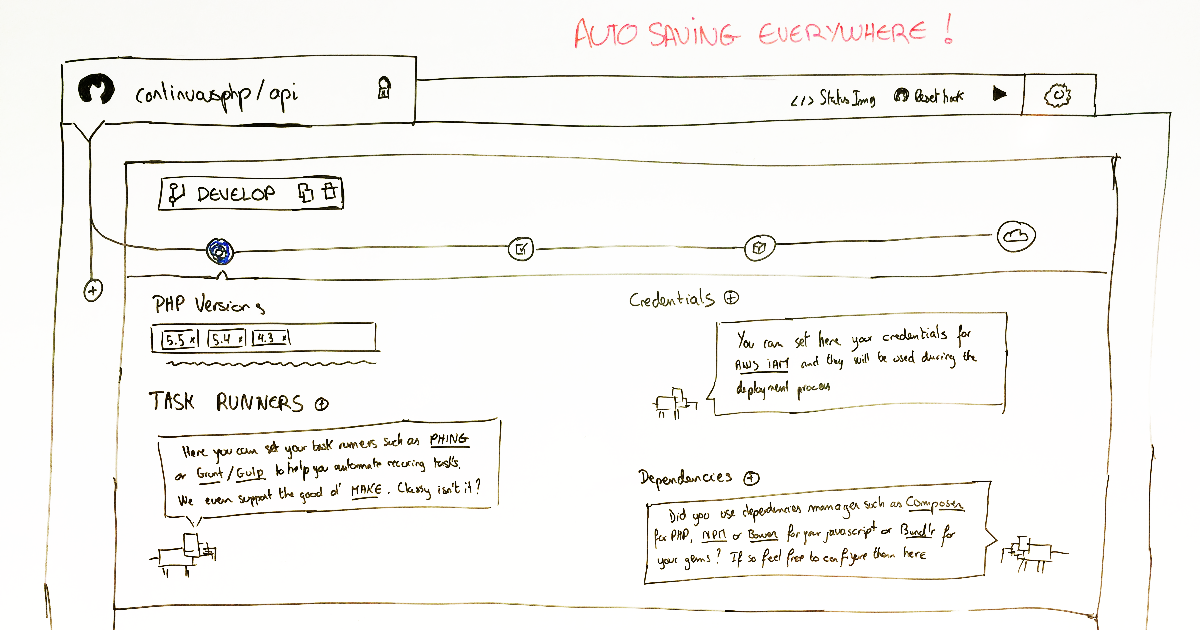 AUTO SAVING EVERYWHERE !
continuousphp/api
</> Status Img
Reset hook
DEVELOP
PHP Versions
5.5 x 5.4 x 4.3 x
TASK RUNNERS
Here you can set your task runners such as PHING
or Grunt/Gulp to help you automate recuring tasks.
We even support the good ol' MAKE. Classy isn't it?
Credentials
You can set here your credentials for
AWS iAM and they will be used during the
deployment process
Dependencies
Did you use dependencies manager such as Composer
for PHP, NPM or Bower for your javascript or Bundlr for
your gems? If so feel free to configure them here